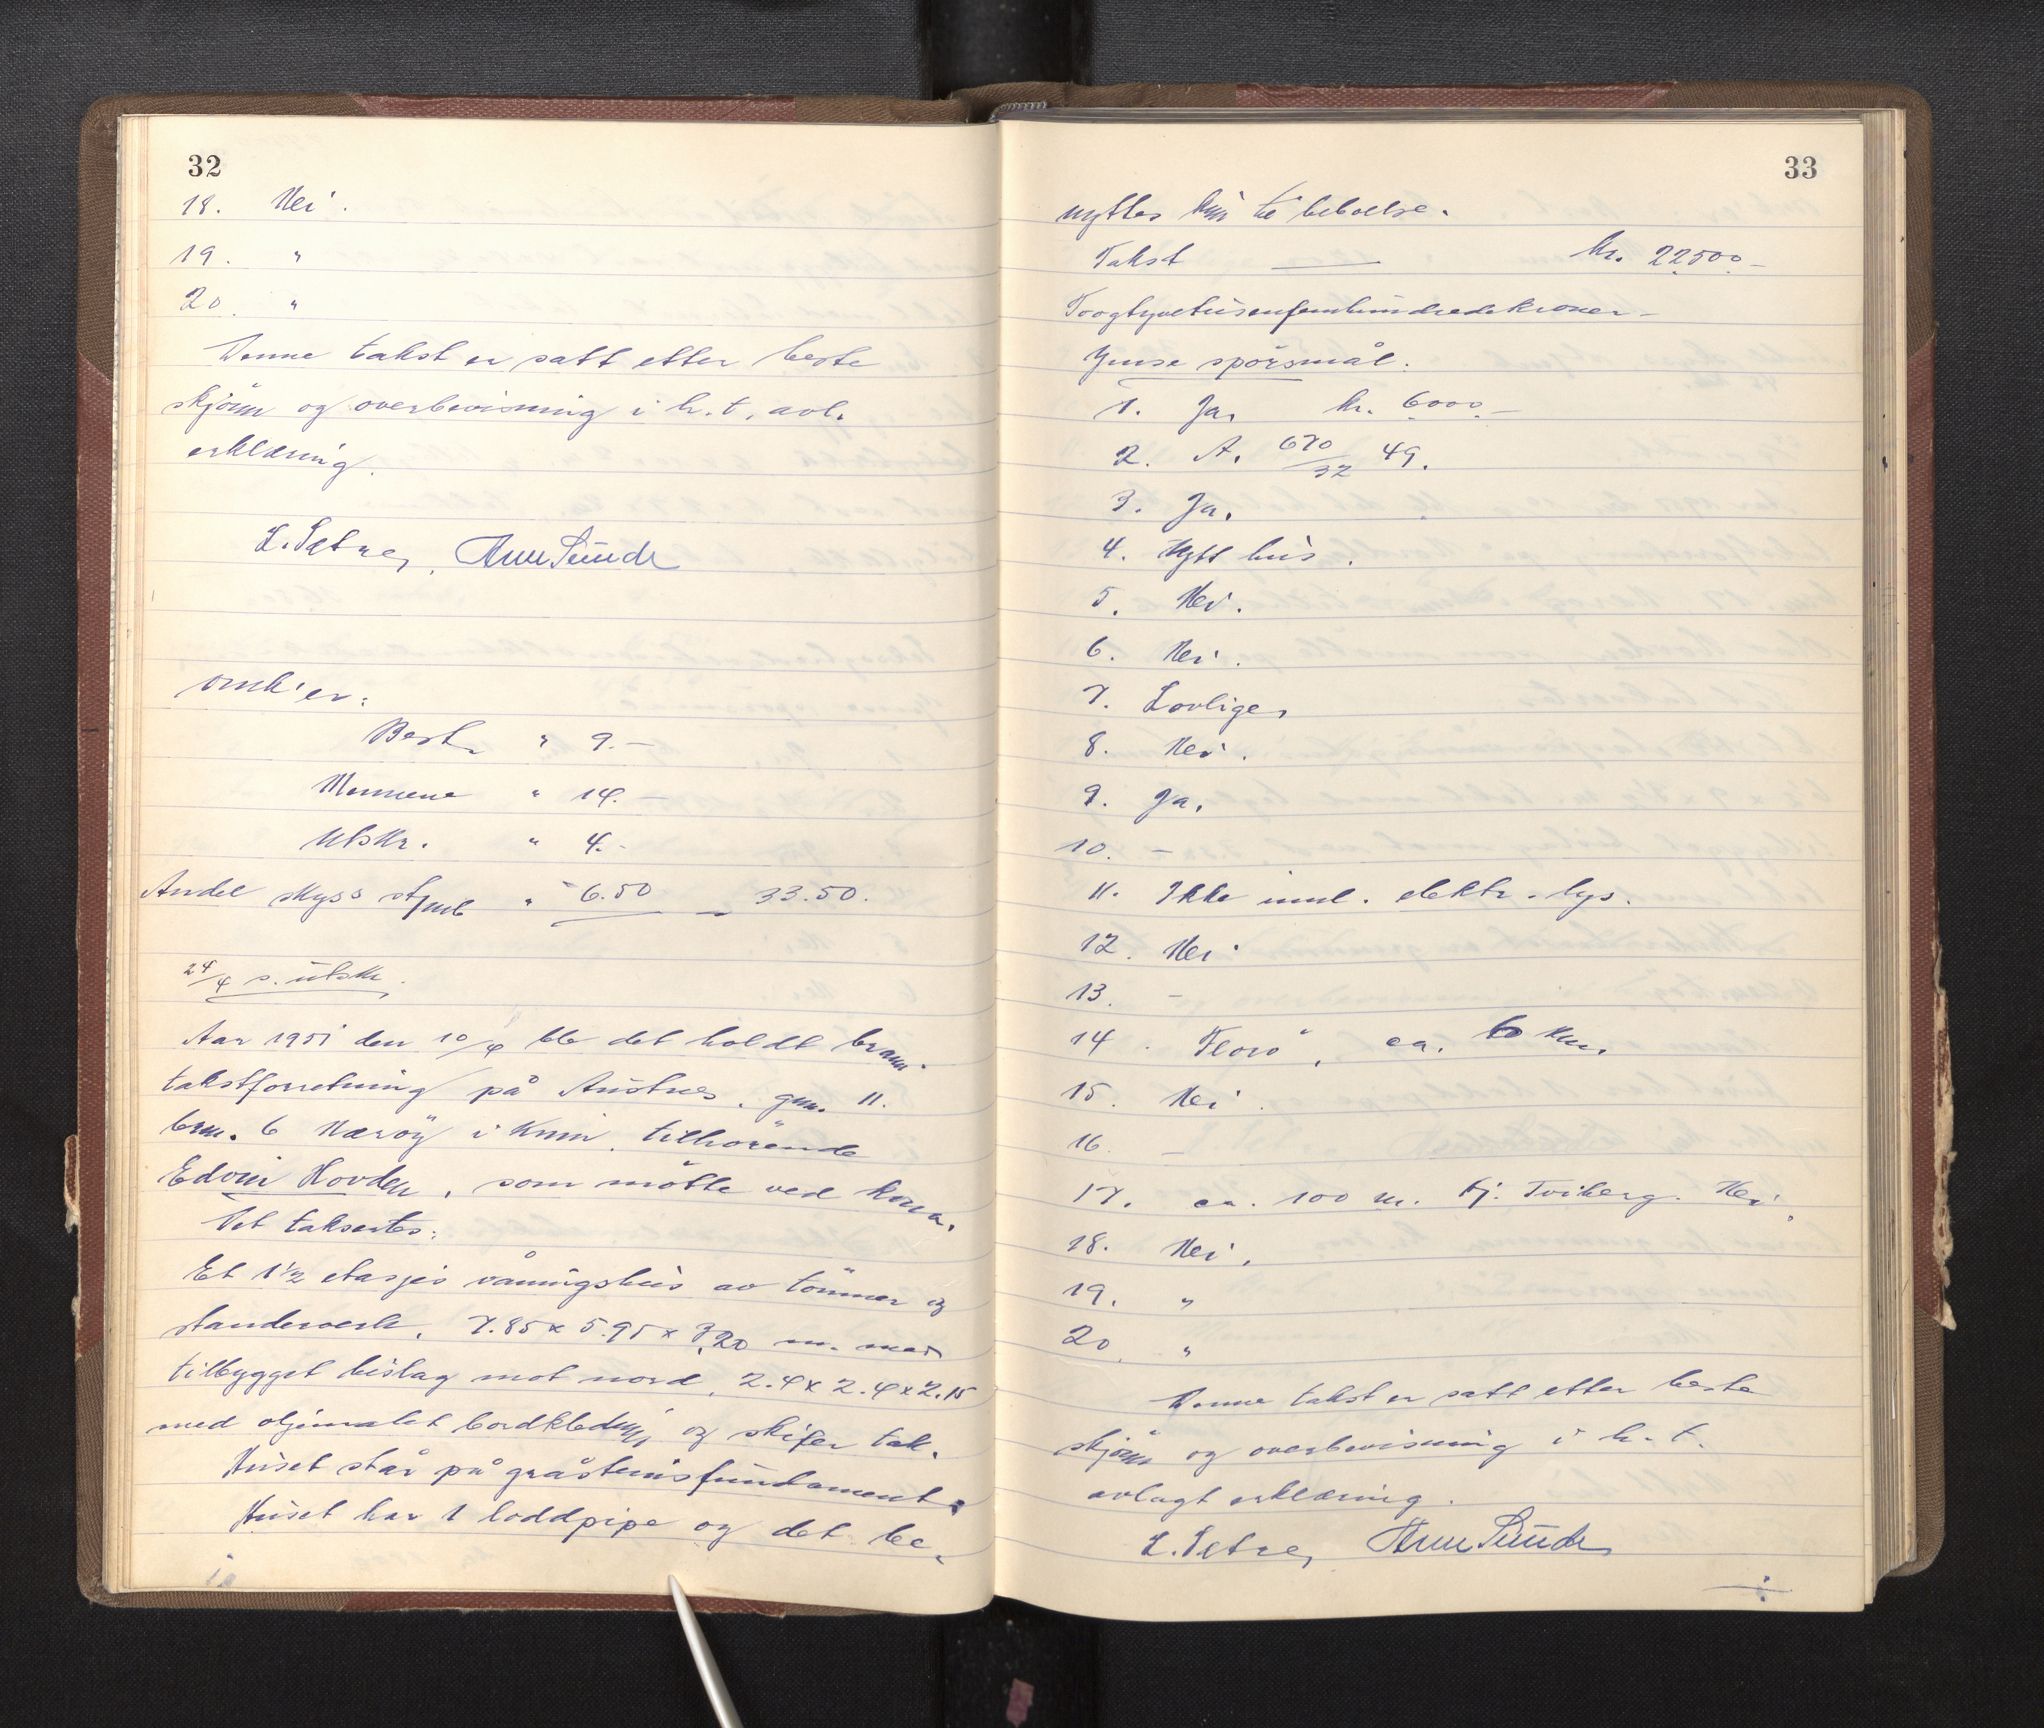 32
18. Nei.
19. "
20. "
Denne takst er satt etter beste
skjönn og overbevisning i h.t. avl.
erklæring.
L. Sætre, Arne Sunde
Omk'er:
Best. " 9.-
Mennene " 14.-
Utskr. " 4.-
Andel skyss " 6.50 33.50.
24/4 s. utskr.
Aar 1951 den 10/4 ble det holdt brann-
takstforretning på Austnes, gnr. 11.
brnr. 6 Næröy i Kinn, tilhörende
Edvin Hovden, som mötte ved kona.
Det takseres:
Et 1½ etasjes våningshus av tömmer og
standerverk, 7.85 x 5.95 x 3.20 m. med
tilbygget bislag mot nord, 2.4 x 2.4 x 2.15
med oljemalet bordkledning og skifer tak.
Huset står på gråsteinsfundament.
Huset har 1 loddpipe og det be-
33
nyttes kun til beboelse.
Takst kr. 22500.-
Toogtyvetusenfemhundredekroner-
Ymse spörsmål.
1. Ja, kr. 6000.-
2. A. 670/32 49.
3. Ja.
4. Nytt hus.
5. Nei.
6. Nei.
7. Lovlige,
8. Nei.
9. Ja.
10. -
11. Ikke innl. elektr. lys.
12. Nei
13. -
14. Florö, ca. 6 km.
15. Nei.
16. -
17. ca. 100 m. tj. Tviberg. Nei.
18. Nei.
19. "
20. "
Denne takst er satt etter beste
skjönn og overbevisning i h.t.
avlagt erklæring.
L. Sætre, Arne Sunde